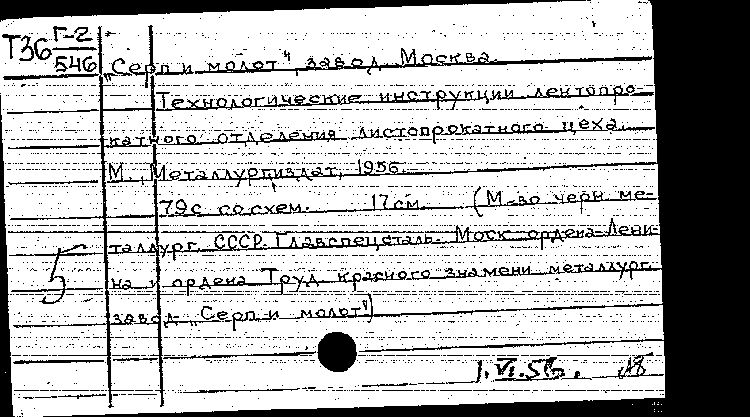 Т36 Г-2
546
„Серп и молот", завод. Москва.
Технологические инструкции лентопро-
катного отделения листопрокатного цеха.
М., Металлургиздат, 1956.
79с. со схем. 17см. (М-во черн. ме-
таллург. СССР. Главспецсталь. Моск. ордена Лени-
на и ордена Труд. красного знамени металлург.
завод „Серп и молот")
5
1.VI.56.